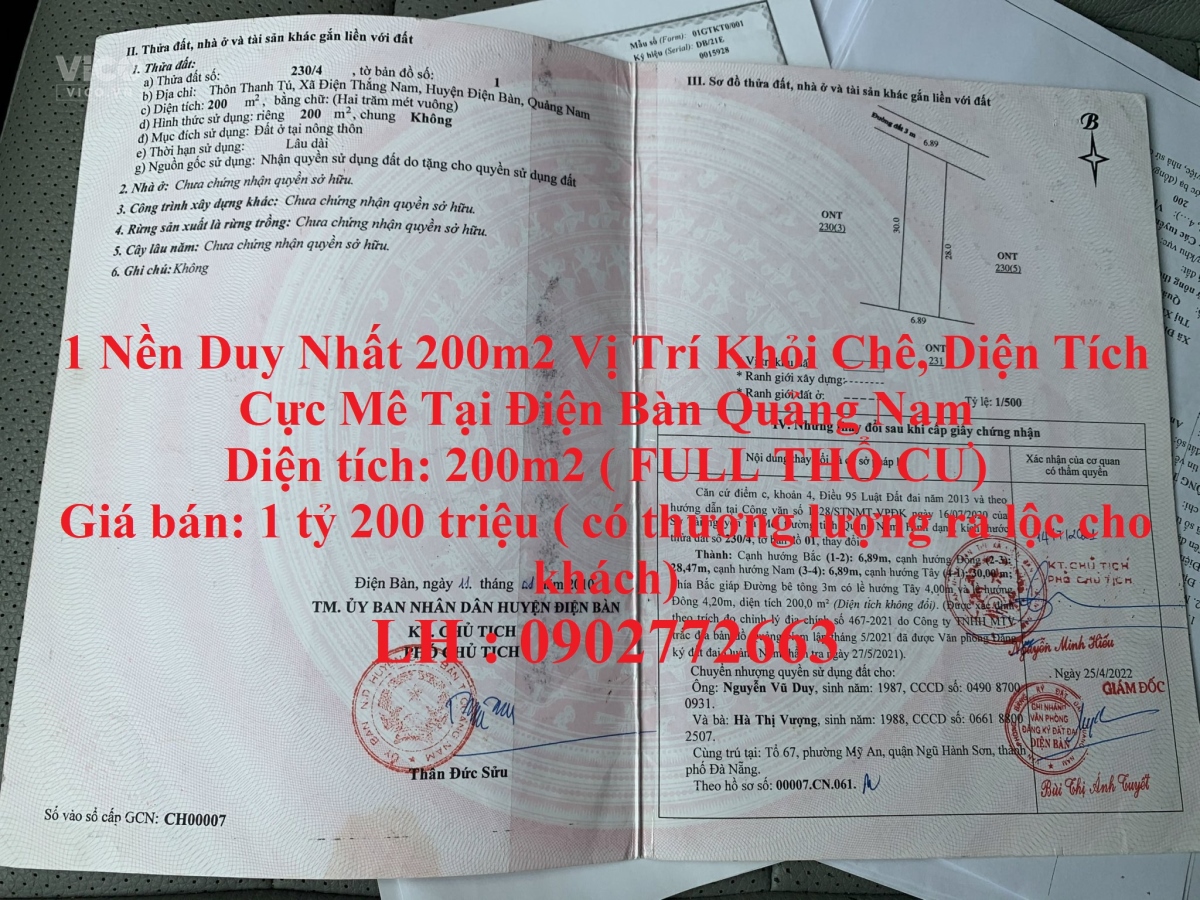 VICO
VICO.VN
II. Thửa đất, nhà ở và tài sản khác gắn liền với đất
1. Thửa đất:
a) Thửa đất số: 230/4 , tờ bản đồ số: 1
b) Địa chỉ: Thôn Thanh Tú, Xã Điện Thắng Nam, Huyện Điện Bàn, Quảng Nam
c) Diện tích: 200 m², bằng chữ: (Hai trăm mét vuông)
d) Hình thức sử dụng: riêng 200 m², chung Không
đ) Mục đích sử dụng: Đất ở tại nông thôn
e) Thời hạn sử dụng: Lâu dài
g) Nguồn gốc sử dụng: Nhận quyền sử dụng đất do tặng cho quyền sử dụng đất
2. Nhà ở: Chưa chứng nhận quyền sở hữu.
3. Công trình xây dựng khác: Chưa chứng nhận quyền sở hữu.
4. Rừng sản xuất là rừng trồng: Chưa chứng nhận quyền sở hữu.
5. Cây lâu năm: Chưa chứng nhận quyền sở hữu.
6. Ghi chú: Không
Mẫu số (Form): 01GTKT0/001
Ký hiệu (Serial): DB/21E
0015928
III. Sơ đồ thửa đất, nhà ở và tài sản khác gắn liền với đất
B
Đường đất 3 m
6.89
ONT
230(3)
30.0
28.0
ONT
230(5)
6.89
ONT
231
* Ranh giới xây dựng:
* Ranh giới đất ở:
Tỷ lệ: 1/500
1 Nền Duy Nhất 200m2 Vị Trí Khỏi Chê, Diện Tích
Cực Mê Tại Điện Bàn Quảng Nam
Diện tích: 200m2 ( FULL THỔ CƯ)
Giá bán: 1 tỷ 200 triệu ( có thương lượng ra lộc cho
khách)
LH : 0902772663
Điện Bàn, ngày 11 tháng
TM. ỦY BAN NHÂN DÂN HUYỆN ĐIỆN BÀN
KT. CHỦ TỊCH
PHÓ CHỦ TỊCH
Thân Đức Sửu
Số vào sổ cấp GCN: CH00007
IV. Những thay đổi sau khi cấp giấy chứng nhận
Nội dung thay đổi và cơ sở pháp lý
Xác nhận của cơ quan
có thẩm quyền
Căn cứ điểm c, khoản 4, Điều 95 Luật Đất đai năm 2013 và theo
hướng dẫn tại Công văn số
thửa đất số 230/4, tờ bản đồ số 01, thay đổi:
Thành: Cạnh hướng Bắc (1-2): 6,89m, cạnh hướng Đông (2-3):
28,47m, cạnh hướng Nam (3-4): 6,89m, cạnh hướng Tây (4-1): 30,00m;
Phía Bắc giáp Đường bê tông 3m có lề hướng Tây 4,00m và lề hướng
Đông 4,20m, diện tích 200,0 m² (Diện tích không đổi). (Được xác định
theo trích đo chỉnh lý địa chính số 467-2021 do Công ty TNHH MTV
ký đất đai Quảng Nam thẩm tra ngày 27/5/2021).
KT. CHỦ TỊCH
PHÓ CHỦ TỊCH
Nguyễn Minh Hiếu
Chuyển nhượng quyền sử dụng đất cho:
Ông: Nguyễn Vũ Duy, sinh năm: 1987, CCCD số: 0490 8700
0931.
Và bà: Hà Thị Vượng, sinh năm: 1988, CCCD số: 0661 8800
2507.
Cùng trú tại: Tổ 67, phường Mỹ An, quận Ngũ Hành Sơn, thành
phố Đà Nẵng.
Theo hồ sơ số: 00007.CN.061.
Ngày 25/4/2022
GIÁM ĐỐC
CHI NHÁNH
VĂN PHÒNG
ĐĂNG KÝ ĐẤT ĐAI
ĐIỆN BÀN
Bùi Thị Ánh Tuyết